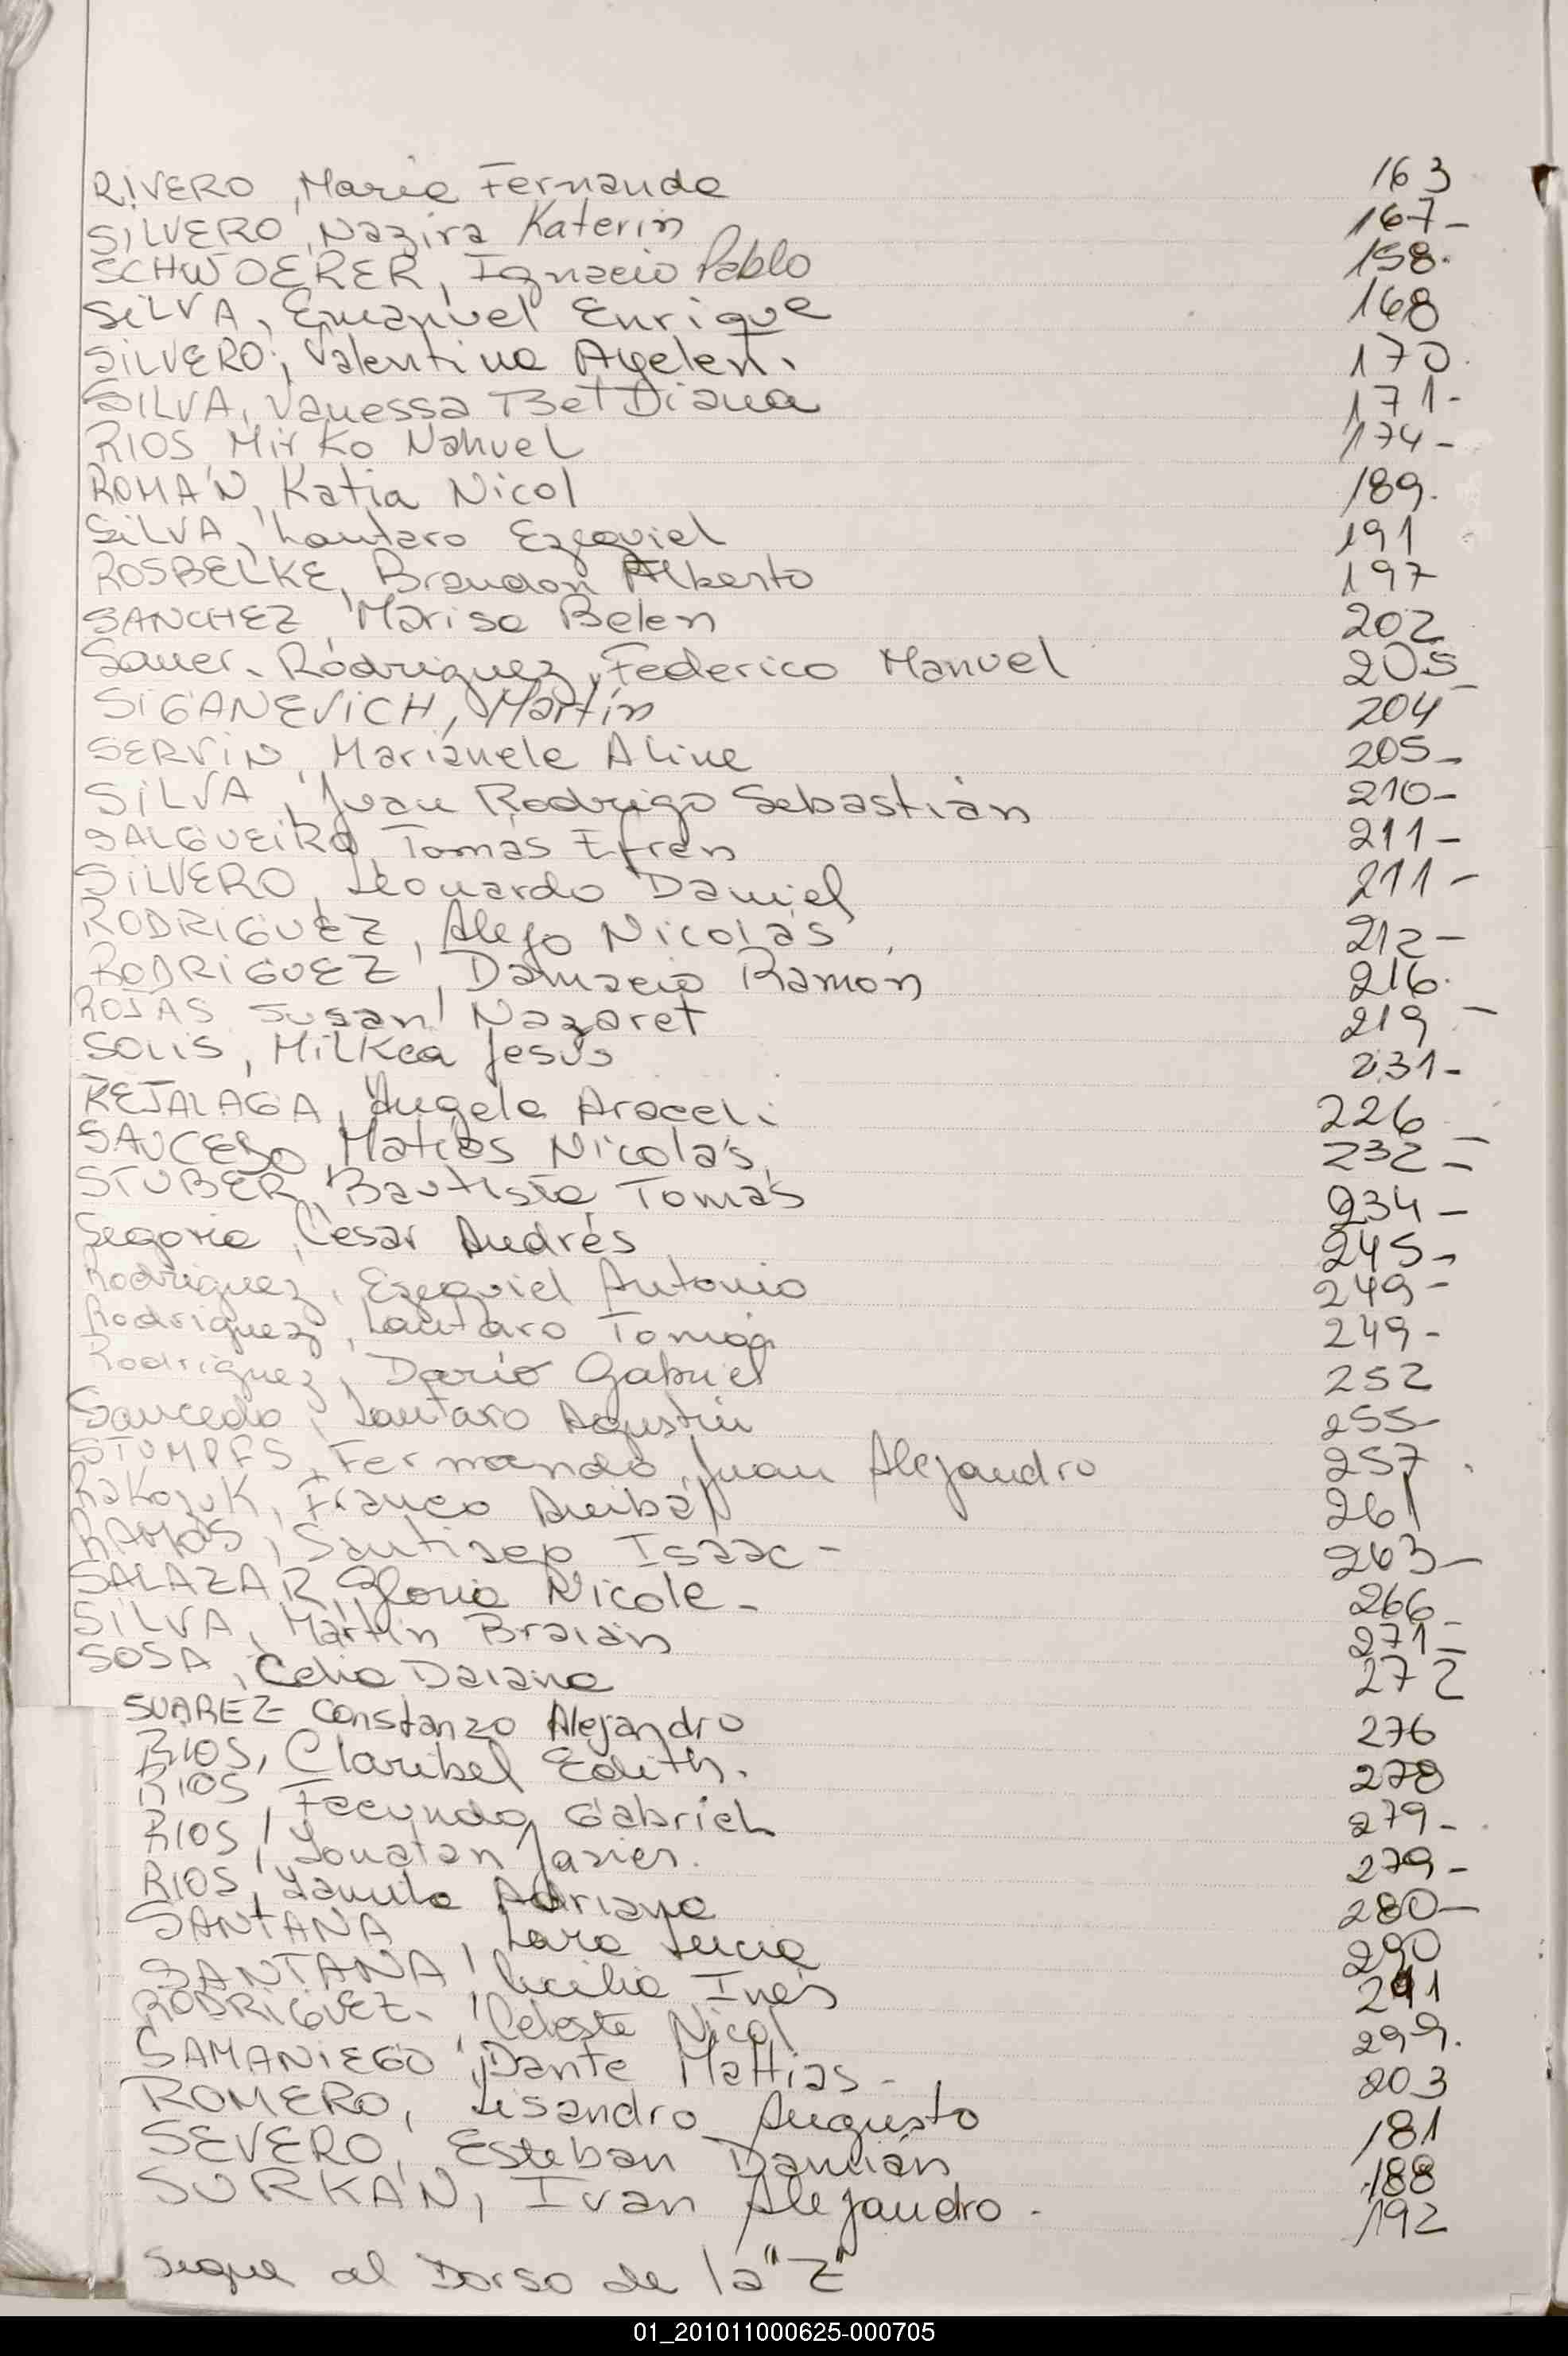 RIVERO, Maria Fernanda 163
SILVERO, Nazira Katerin 167-
SCHWOERER, Ignacio Pablo 158.
SILVA, Emanuel Enrique 168
SILVERO, Valentina Ayelen. 170.
SILVA, Vanessa Bet Diana 171-
RIOS Mirko Nahuel 174-
ROMÁN, Katia Nicol 189.
SILVA, Lautaro Ezequiel 191
ROSBELKE, Brandon Alberto 197
SANCHEZ, Marisa Belen 202
Sauer. Rodriguez, Federico Manuel 205
SIGANEVICH, Martín 204
SERVIN, Marianela Aline 205-
SILVA, Juan Rodrigo Sebastián 210-
SALGUEIRO, Tomás Efren 211-
SILVERO, Leonardo Daniel 211-
RODRIGUEZ, Alejo Nicolás 212-
RODRIGUEZ, Damacio Ramón 216.
ROJAS Susan Nazaret 219-
SOLIS, Milkea Jesús 231-
REJALAGA, Angela Araceli 226
SAUCEDO, Matias Nicolás, 232-
STUBER, Bautista Tomás 234-
Segovia, Cesar Andrés 245-
Rodriguez, Ezequiel Antonio 249-
Rodriguez, Lautaro Tomás 249-
Rodriguez, Darío Gabriel 252
Saucedo, Lautaro Agustín 255-
STUMPFS, Fernando Juan Alejandro 257.
Rakojuk, Franco Anibal 261
RAMOS, Santiago Isaac- 263-
SALAZAR, Gloria Nicole- 266-
SILVA, Martin Braian 271-
SOSA, Celia Daiana 272
SUAREZ Constanzo Alejandro 276
RIOS, Claribel Edith. 278
RIOS, Facundo Gabriel 279-
RIOS, Yonatan Javier. 279-
RIOS, Yamila Adriana 280-
SANTANA, Lara Lucia 290
SANTANA, Cecilia Inés 291
RODRIGUEZ., Celeste Nicol 299.
SAMANIEGO, Dante Mattias- 203
ROMERO, Lisandro Augusto 181
SEVERO, Esteban Damián 188
SURKAN, Ivan Alejandro. 192
Sigue al Dorso de la "Z"
01_201011000625-000705